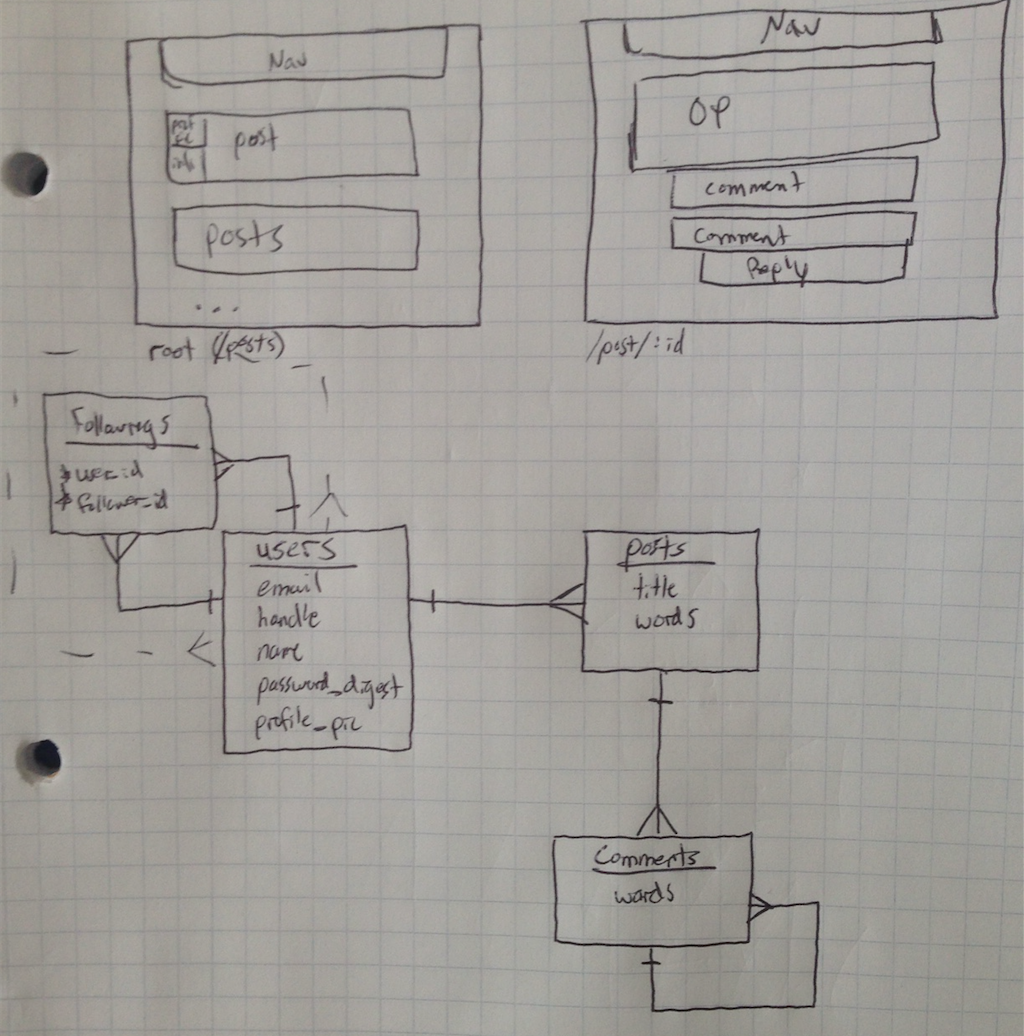 Nav
prof
pic
info
post
posts
...
root (/posts)
Nav
OP
comment
comment
Reply
/post/:id
Followings
* user_id
* follower_id
users
email
handle
name
password_digest
profile_pic
posts
title
words
Comments
words